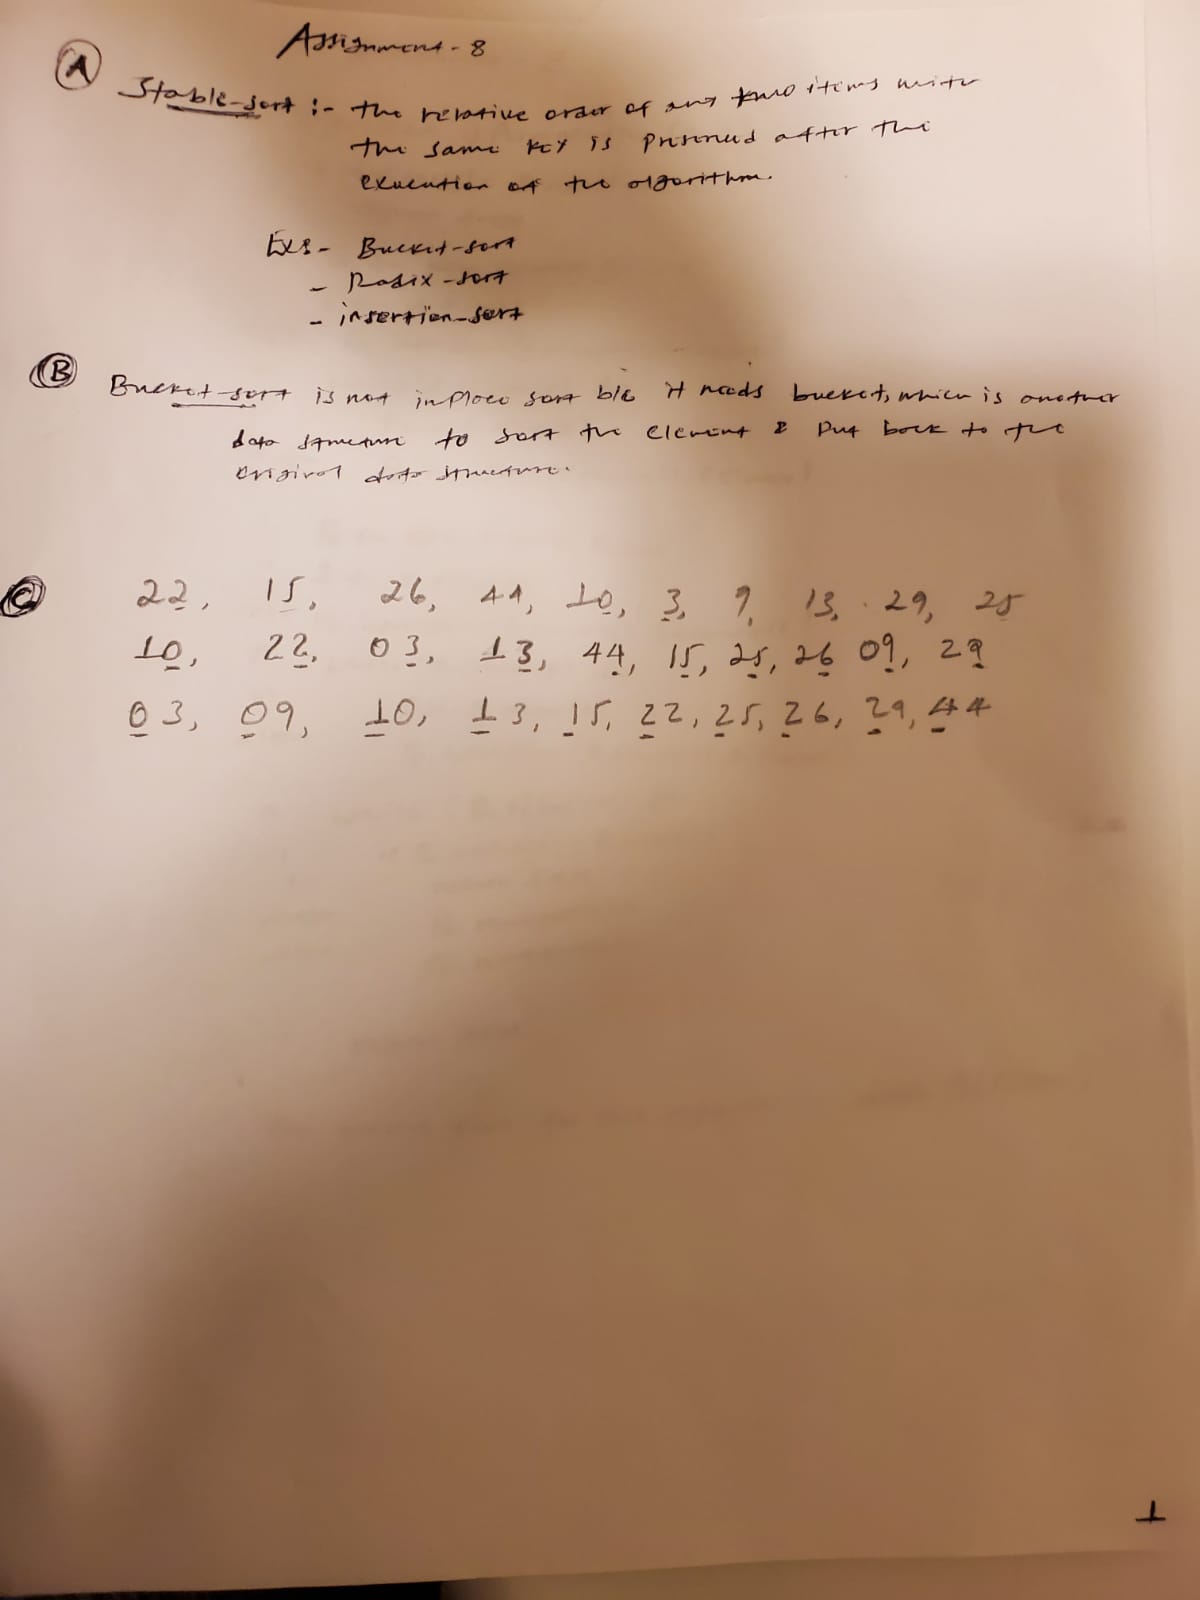 Assignment - 8
A
Stable-sort :- the relative order of any two items with
the same key is preserved after the
execution of the algorithm.
Exs - Bucket-sort
- Radix-sort
- insertion-sort
B
Bucket-sort is not inplace sort b/c it needs bucket, which is another
data structure to sort the element & put back to the
original data structure.
C
22, 15, 26, 44, 10, 3, 9, 13, 29, 25
10, 22, 03, 13, 44, 15, 25, 26 09, 29
03, 09, 10, 13, 15, 22, 25, 26, 29, 44
1